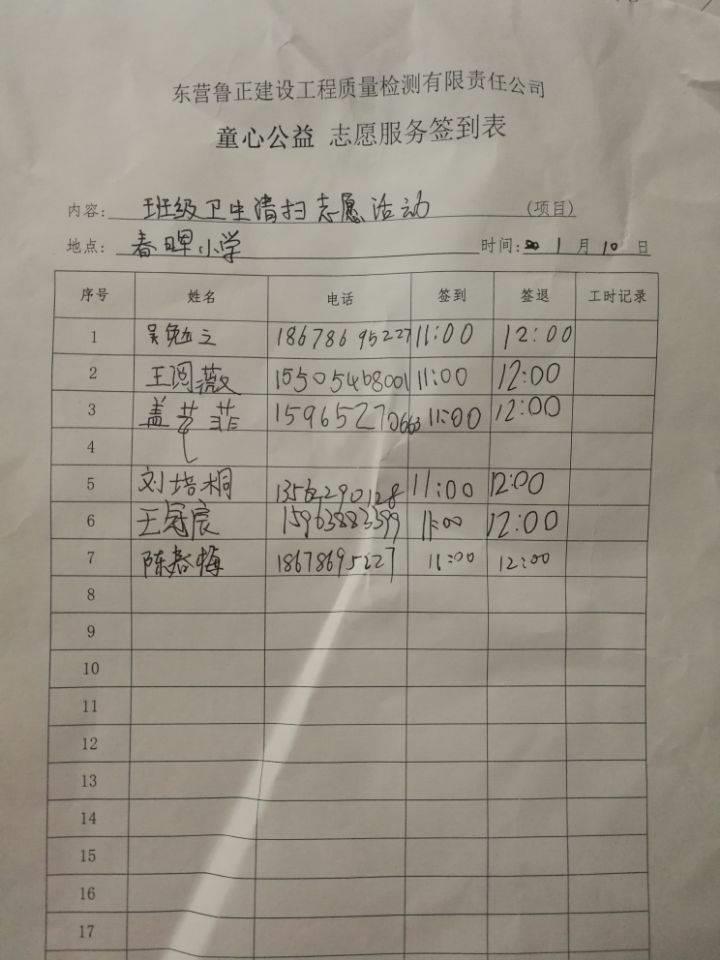 东营鲁正建设工程质量检测有限责任公司
童心公益 志愿服务签到表
内容: 班级卫生清扫志愿活动 (项目)
地点: 春晖小学 时间: 1 月 10 日
序号 姓名 电话 签到 签退 工时记录
1 吴勉之 18678695227 11:00 12:00
2 王阅薇 15505468001 11:00 12:00
3 盖艺菲 15965270663 11:00 12:00
4
5 刘培桐 13562290128 11:00 12:00
6 王冠宸 15963883399 11:00 12:00
7 陈春梅 18678695227 11:00 12:00
8
9
10
11
12
13
14
15
16
17